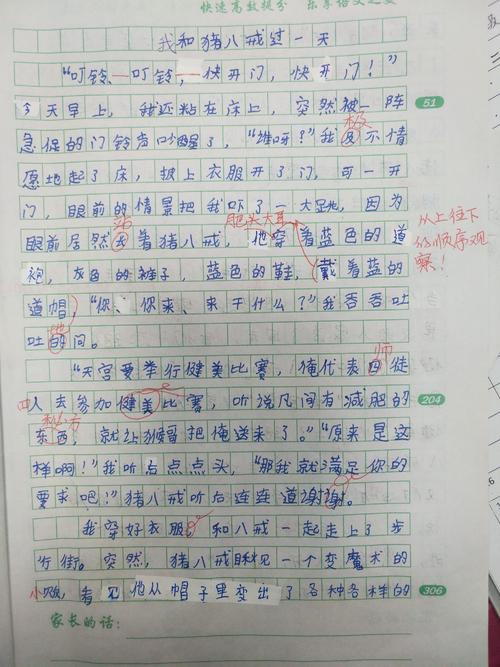 快速高效提分 乐享语文之美
我和猪八戒过一天
“叮铃、叮铃，快开门，快开门！”
今天早上，我还粘在床上，突然被一阵
51
急促的门铃声吵醒了，“谁呀？”我及不情
极
愿地起了床，披上衣服开了门，可一开
门，眼前的情景把我吓了一大跳，因为
站
肥头大耳
眼前居然着猪八戒，他穿着蓝色的道
从上往下
的顺序观
察！
袍，灰色的裤子，蓝色的鞋，戴着蓝的
道帽，“你、你来、来干什么？”我吞吞吐
吐的问。
地
“天宫要举行健美比赛，俺代表四徒
师
四人去参加健美比赛，听说凡间有减肥的
204
东西，就让猴哥把俺送来了。”“原来是这
样啊！”我听点点点头，“那我就满足你的
要求吧！”猪八戒听后连连道谢谢。
我穿好衣服，和八戒一起走上了步
行街。突然，猪八戒瞅见一个变魔术的
小贩，看见他从帽子里变出了各种各样的
306
家长的话：